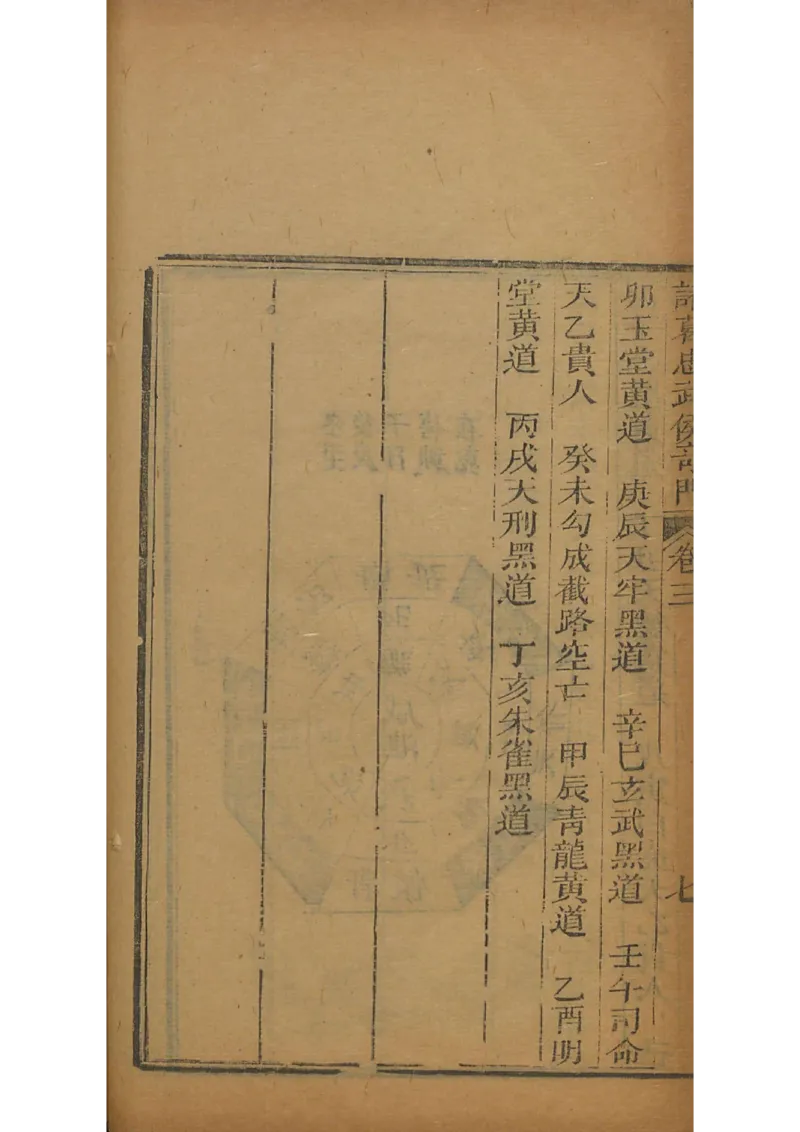 諸葛忠武侯奇門 卷三 七
卯玉堂黃道 庚辰天牢黑道 辛巳玄武黑道 壬午司命
天乙貴人 癸未勾成截路空亡 甲辰青龍黃道 乙酉明
堂黃道 丙戌天刑黑道 丁亥朱雀黑道